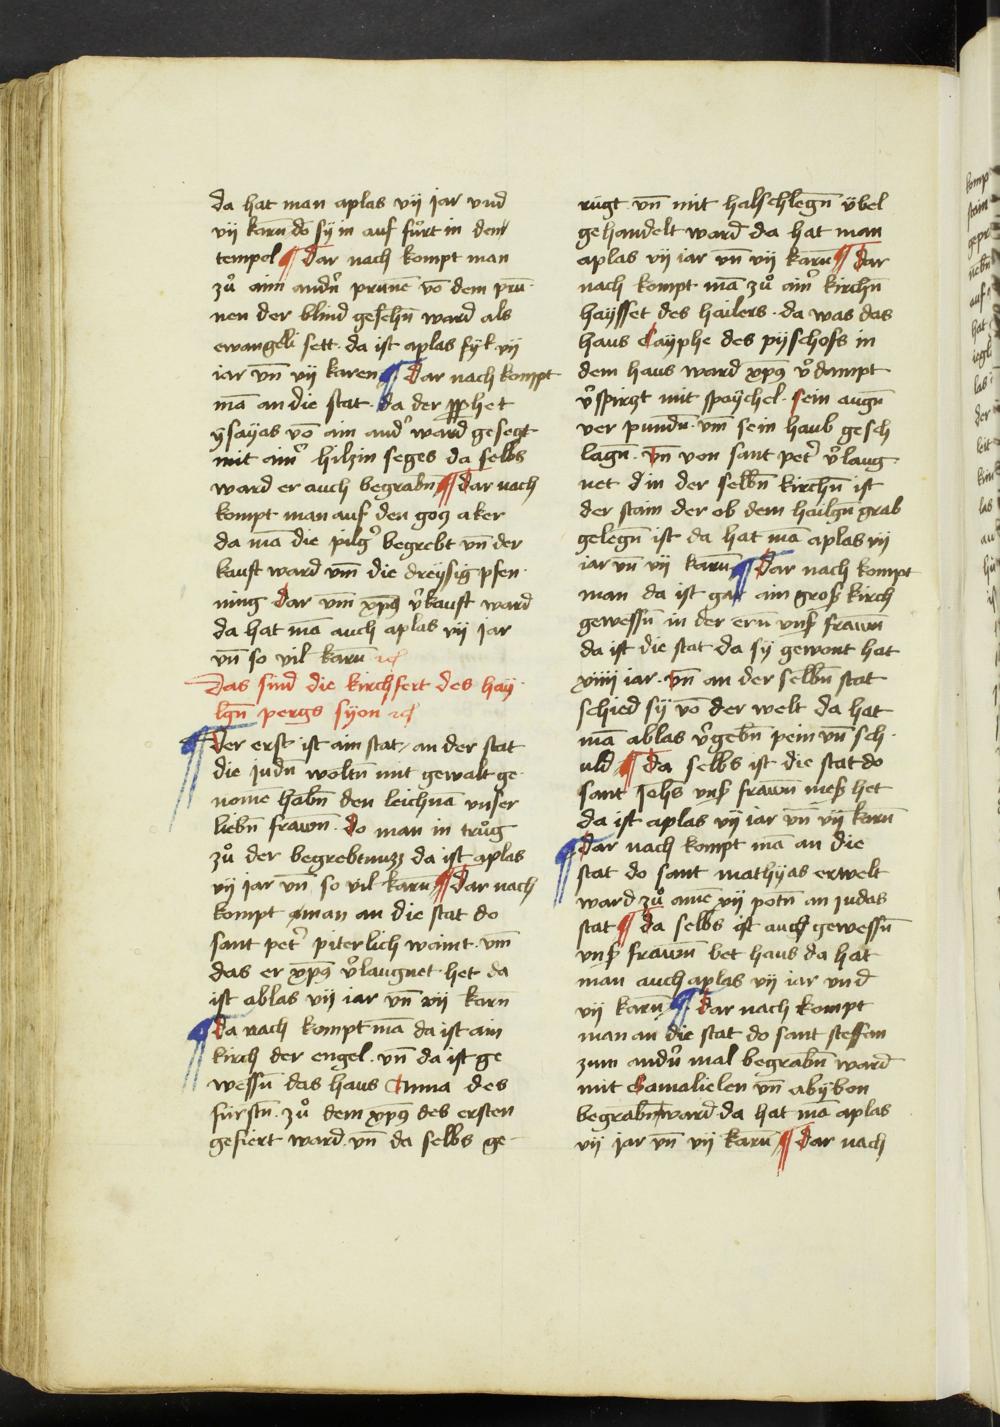 da hat man aplas vij jar vnd
vij karn̄ do sy in auf fuͦrt in den
tempel ¶ Dar nach kompt man
zuͦ aim andn̄ prunnē vō dem prū
nen der blind gesehn̄ ward als
ewangeli sett · da ist aplas
iar vn̄ vij karen ¶ Dar nach kompt
mā an die stat · da der prophet
ysayas vō ain and̾ ward gesegt
mit ain̾ hilzin seges da selbs
ward er auch begrabn̄ ¶ Dar nach
kompt man auf den gog aker
da mā die pilg̾ begrebt vn̄ der
kauft ward vm̄ die dreysig pfen ·
ning Dar vm̄ xp̄ꝯ v̾kauft ward
da hat mā auch aplas vij jar
vn̄ so vil karn̄ ⁊c̄
Das sind die kirchfert des hay ·
lgn̄ pergs syon ⁊c̄
¶ Der erst ist ain stat / an der stat
die judn̄ woltn̄ mit gewalt ge ·
nome habn̄ den leichnā vnser
liebn̄ frawn · Do man in truͦg
zuͦ der begrebtnuzz da ist aplas
vij jar vn̄ so vil karn̄ ¶ Dar nach
kompt man an die stat do
sant pet̾ piterlich waint · vm̄
das er xp̄ꝯ v̾laugnet · het da
ist ablas vij iar vn̄ vij karn̄
¶ Da nach kompt mā da ist ain
kirch der engel · vn̄ da ist ge
wessn̄ das haus Anna des
fürstn̄ · zuͦ dem xp̄ꝯ des ersten
gefiert ward · vn̄ da selbs ge-
rugt · vn̄ mit halschlegn̄ übel
gehandelt ward da hat man
aplas vij iar vn̄ vij karn̄ ¶ Dar
nach kompt mā zuͦ ain̾ kirchn̄
haysset des hailers · da was das
haus Cayphe des pyschofs in
dem haus ward xp̄ꝯ v̾dampt
v̾spirgt mit spaychel · sein augn̄
ver pundn̄ · vm̄ sein haub gesch
lagn̄ · vn̄ von sant pet̾ v̾laug
net d in der selbn̄ kirchn̄ ist
der stain der ob dem hailgn̄ grab
gelegn̄ ist da hat mā aplas vij
iar vn̄ vij karn̄ ¶ Dar nach kompt
man da ist gar ain groß kirch
gewessn̄ in der ern̄ vnß frawn̄
da ist die stat da sy gewont hat
xiiij iar · vn̄ an der selbn̄ stat
schied sy vō der welt da hat
mā ablas v̾gebn̄ pein vn̄ sch ·
uld ¶ Da selbs ist die stat do
sant Johs vnß frawn̄ meß het
da ist aplas vij iar vn̄ vij karn̄
¶ Dar nach kompt mā an die
stat do sant mathyas erwelt
ward zuͦ aine xij potn̄ an judas
stat ¶ da selbs ist auch gewessn̄
vnß frawn̄ bet haus da hat
man auch aplas vij iar vnd
vij karn̄ ¶ Dar nach kompt
man an die stat do sant steffan
zum andn̄ mal begrabn̄ ward
mit Gamalielen vn̄ abybon
begrabn̄ ward · da hat mā aplas
vij jar vn̄ vij karn̄ ¶ Dar nach